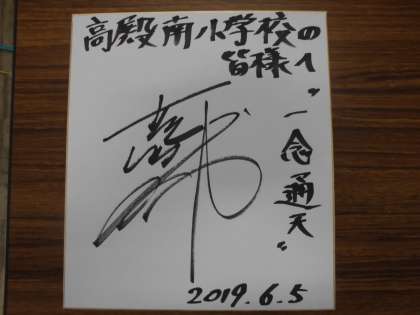 高殿南小学校の
皆様へ
"一念通天"
2019.6.5